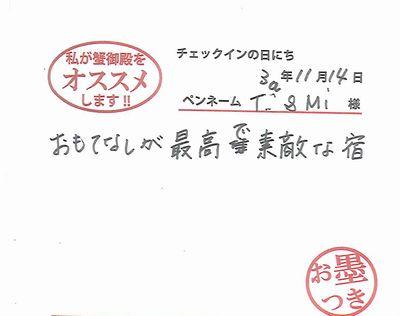 私が蟹御殿を
オススメ
します!!
チェックインの日にち
30年11月14日
ペンネーム T. & Mi 様
おもてなしが最高で素敵な宿
お墨
つき